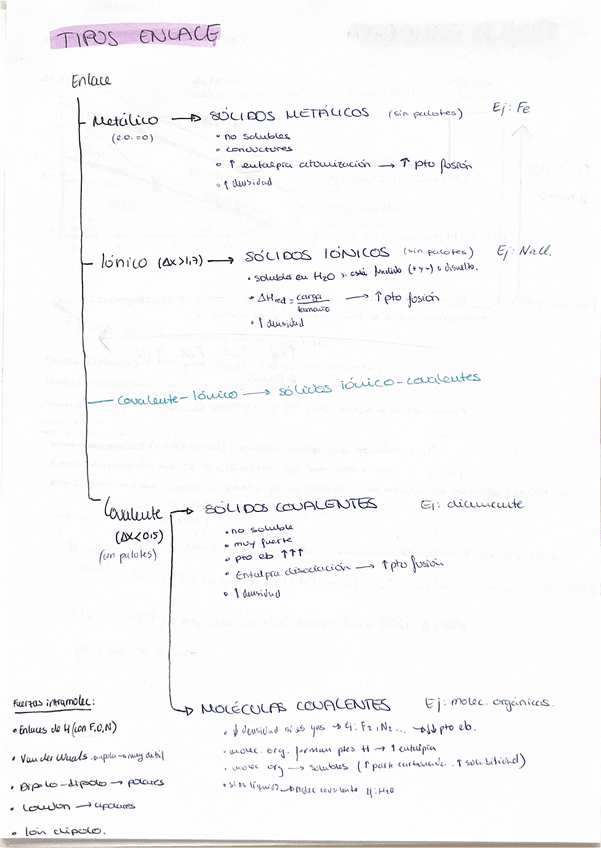 TIPOS ENLACE
Enlace
Metálico → SÓLIDOS METÁLICOS (sin palotes) Ej: Fe
(e.o.=0)
• no solubles
• conductores
• ↑ entalpía atomización → ↑ pto fusión
• ↑ densidad
Iónico (Δx>1,7) → SÓLIDOS IÓNICOS (sin palotes) Ej: NaCl.
• solubles en H₂O si está fundido (+ y -) o disuelto.
• ΔHred = carga/tamaño → ↑ pto fusión
• ↑ densidad
Covalente-Iónico → sólidos iónico-covalentes
Covalente → SÓLIDOS COVALENTES Ej: diamante
(Δx<0,5)
(con palotes)
• no soluble
• muy fuerte
• pto eb ↑↑↑
• Entalpía disociación → ↑ pto fusión
• ↑ densidad
→ MOLÉCULAS COVALENTES Ej: molec. orgánicas.
• ↓ densidad si es gas → Ej: F₂, N₂... → ↓↓ pto eb.
• molec. org. forman ptes H → ↑ entalpía
• molec org → solubles (↑ parte carbonada, ↑ solubilidad)
• si es líquido → molec covalente Ej: H₂O
Fuerzas intramolec:
• Enlaces de H (con F, O, N)
• Van der Waals → muy débil
• Dipolo-dipolo → polares
• London → apolares
• Ión dipolo.